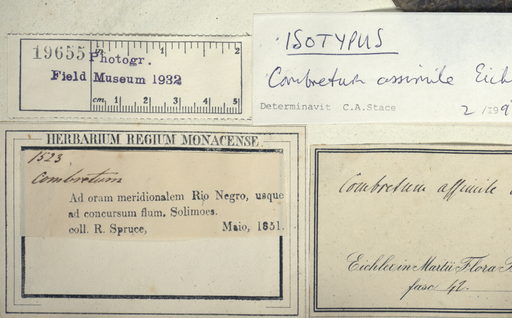 19655
Photogr.
Field Museum 1932
1 2
cm. 1 2 3 4 5
ISOTYPUS
Combretum assimile Eich
Determinavit C.A.Stace
HERBARIUM REGIUM MONACENSE.
1523
Combretum
Ad oram meridionalem Rio Negro, usque
ad concursum flum. Solimoes.
coll. R. Spruce, Maio, 1851.
Combretum assimile
Eichler in Martii Flora
fasc 42.